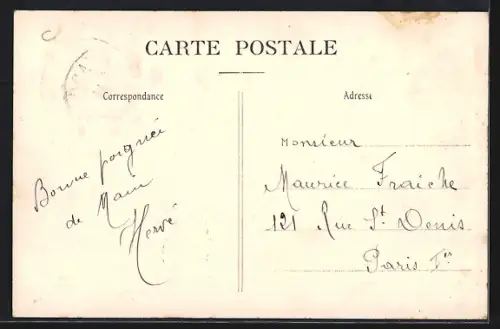 CARTE POSTALE
Correspondance
Adresse
Bonne poignée
de Main
Hervé
Monsieur
Maurice Fraiche
121 Rue St. Denis
Paris 1er